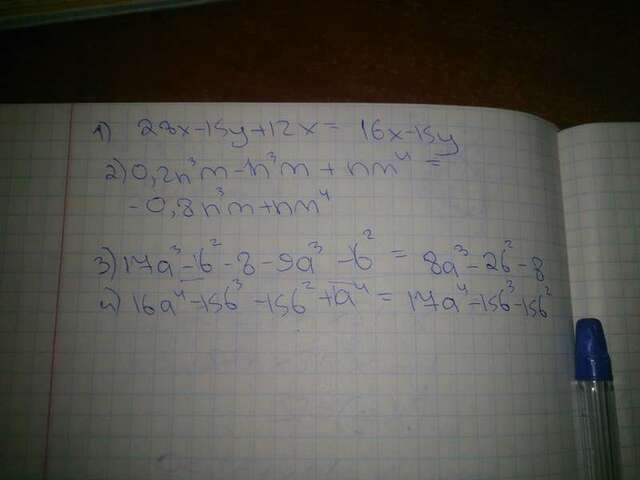 1) 28x-15y+12x= 16x-15y
2) 0,2n³m-n³m + nm⁴ =
-0,8n³m+nm⁴
3) 17a³-b²-8-9a³-b² = 8a³-2b²-8
4) 16a⁴-15b³-15b²+a⁴= 17a⁴-15b³-15b²